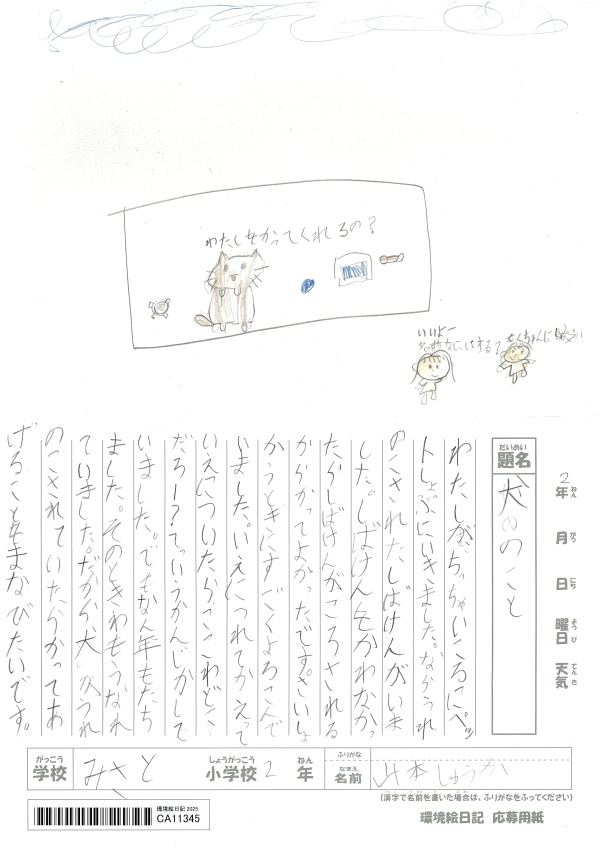 わたしをかってくれるの？
いいよー
名前なにはする？
だいめい
題名
犬のこと
2
年 ねん
月 がつ
日 にち
曜日 ようび
天気 てんき
わたしがちっちゃいころにペッ
トしょっぷにいきました。ながうれ
のこされたしばけんがいま
した。しばけんをかわなかっ
たらしばけんがころされる
からかってよかったです。さいしょ
かうときにすごくよろこんで
いました。いえにつれてかえって
いえについたらここわどこ
だろー？ていうかんじがして
いました。でもなん年もたち
ました。そのときわもうなれ
ていました。だから犬がうれ
のこされていたらかってあ
げることをまなびたいです。
がっこう
学校
みさと
しょうがっこう
小学校
2
ねん
年
ふりがな
なまえ
名前
山本しゅうか
(漢字で名前を書いた場合は、ふりがなをふってください)
環境絵日記 2025
CA11345
環境絵日記 応募用紙